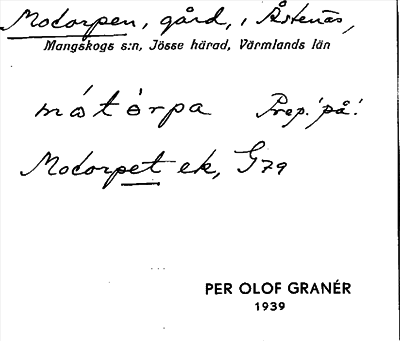 Motorpen, gård, i Åstenäs,
Mangskogs s:n, Jösse härad, Värmlands län
mótòrpa Prep. 'på'.
Motorpet ek, G79
PER OLOF GRANÉR
1939